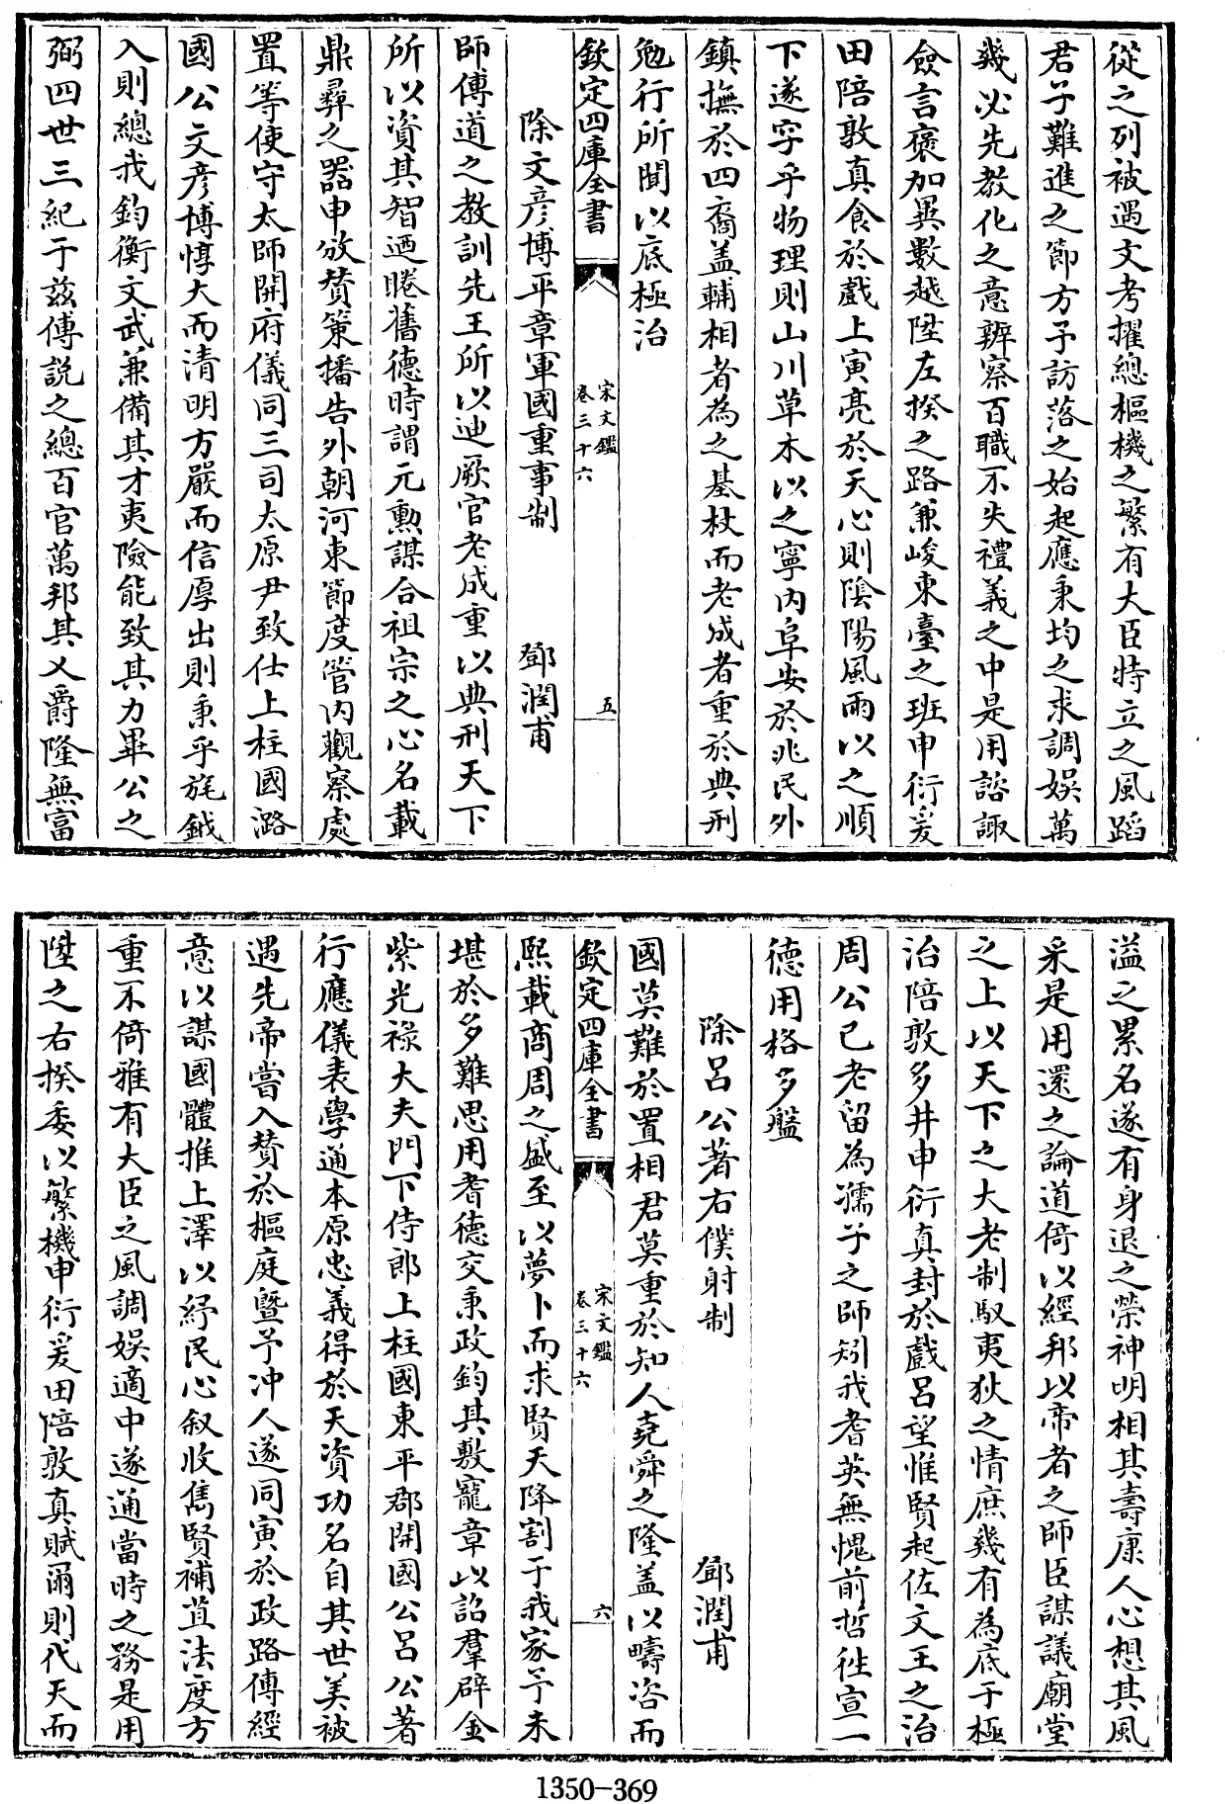 從之列被遇文考擢總樞機之繁有大臣特立之風蹈
君子難進之節方予訪落之始起應秉均之求調娛萬
幾必先教化之意辨察百職不失禮義之中是用諮諏
僉言褒加異數越陞左揆之路兼峻東臺之班申衍爰
田陪敦真食於戲上寅亮於天心則陰陽風雨以之順
下遂字乎物理則山川草木以之寧内阜安於兆民外
鎮撫於四裔盖輔相者為之基杖而老成者重於典刑
勉行所聞以底極治
欽定四庫全書 宋文鑑 卷三十六 五
除文彦博平章軍國重事制 鄧潤甫
師傅道之教訓先王所以迪厥官老成重以典刑天下
所以資其智廼睠舊德時謂元勲謀合祖宗之心名載
鼎彞之器申攽賛策播告外朝河東節度管内觀察處
置等使守太師開府儀同三司太原尹致仕上柱國潞
國公文彦博惇大而清明方嚴而信厚出則秉乎旄鉞
入則總我鈞衡文武兼備其才夷險能致其力畢公之
弼四世三紀于兹傅説之總百官萬邦其乂爵隆無富
溢之累名遂有身退之榮神明相其壽康人心想其風
采是用還之論道倚以經邦以帝者之師臣謀議廟堂
之上以天下之大老制馭夷狄之情庶幾有為底于極
治陪敦多井申衍真封於戲吕望惟賢起佐文王之治
周公已老留為孺子之師矧我耆英無愧前哲徃宣一
德用格多盬
除吕公著右僕射制 鄧潤甫
國莫難於置相君莫重於知人堯舜之隆盖以疇咨而
欽定四庫全書 宋文鑑 卷三十六 六
熙載商周之盛至以夢卜而求賢天降割于我家予未
堪於多難思用耆德交秉政鈞其敷寵章以詔羣辟金
紫光祿大夫門下侍郎上柱國東平郡開國公吕公著
行應儀表學通本原忠義得於天資功名自其世美被
遇先帝嘗入賛於樞庭暨予冲人遂同寅於政路傅經
意以謀國體推上澤以紓民心叙收雋賢補苴法度方
重不倚雅有大臣之風調娛適中遂通當時之務是用
陞之右揆委以繁機申衍爰田陪敦真賦爾則代天而
1350-369